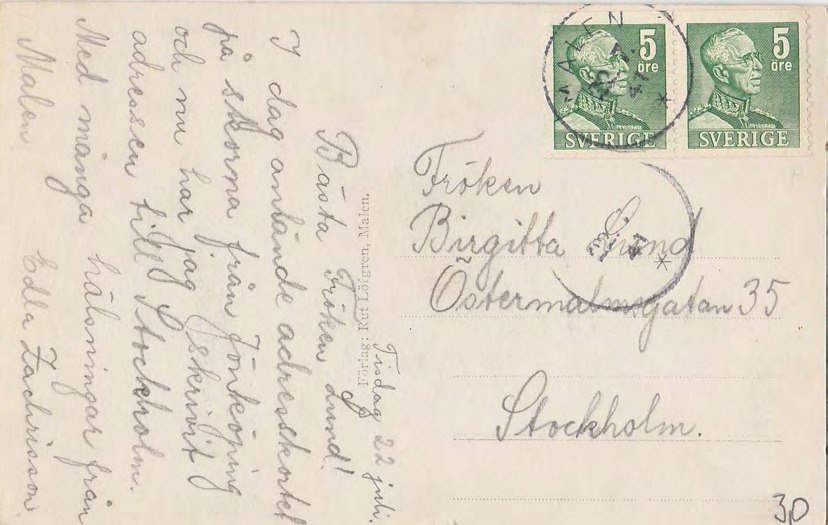 Tisdag 22 juli.
Bästa Fröken Lund!
I dag anlände adresskortet
på skorna från Jönköping
och nu har jag skrivit
adressen till Stockholm.
Med många hälsningar från
Malen Edla Zachrisson.
Förlag: Rut Löfgren, Malen.
MALEN
22
41
5
öre
SVERIGE
5
öre
SVERIGE
22
41
Fröken
Birgitta Lund
Östermalmsgatan 35
Stockholm.
30